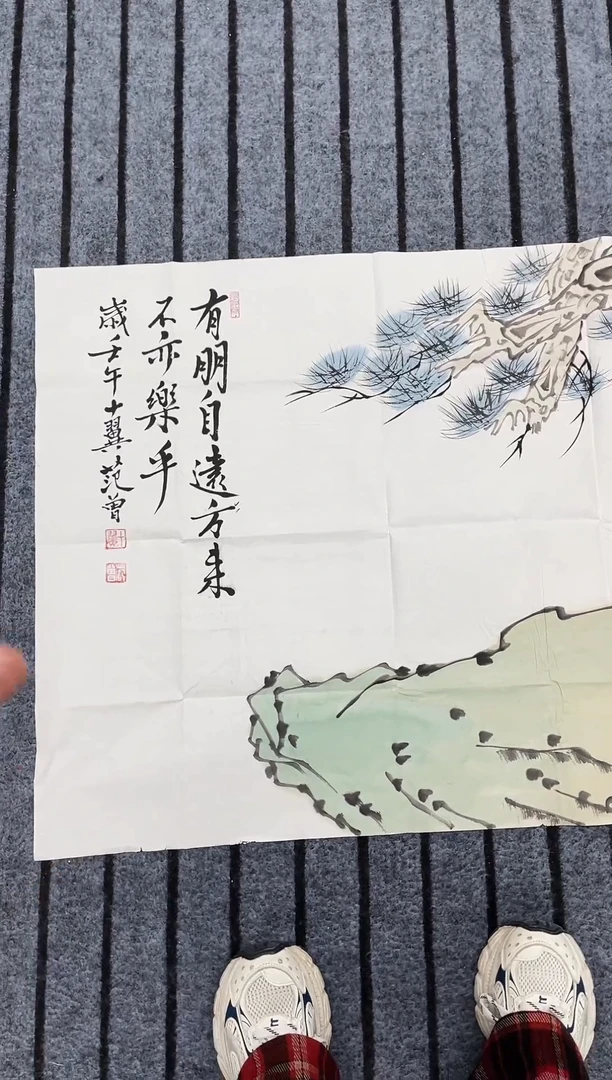 有朋自遠方来
不亦樂乎
歲壬午十翼范曾